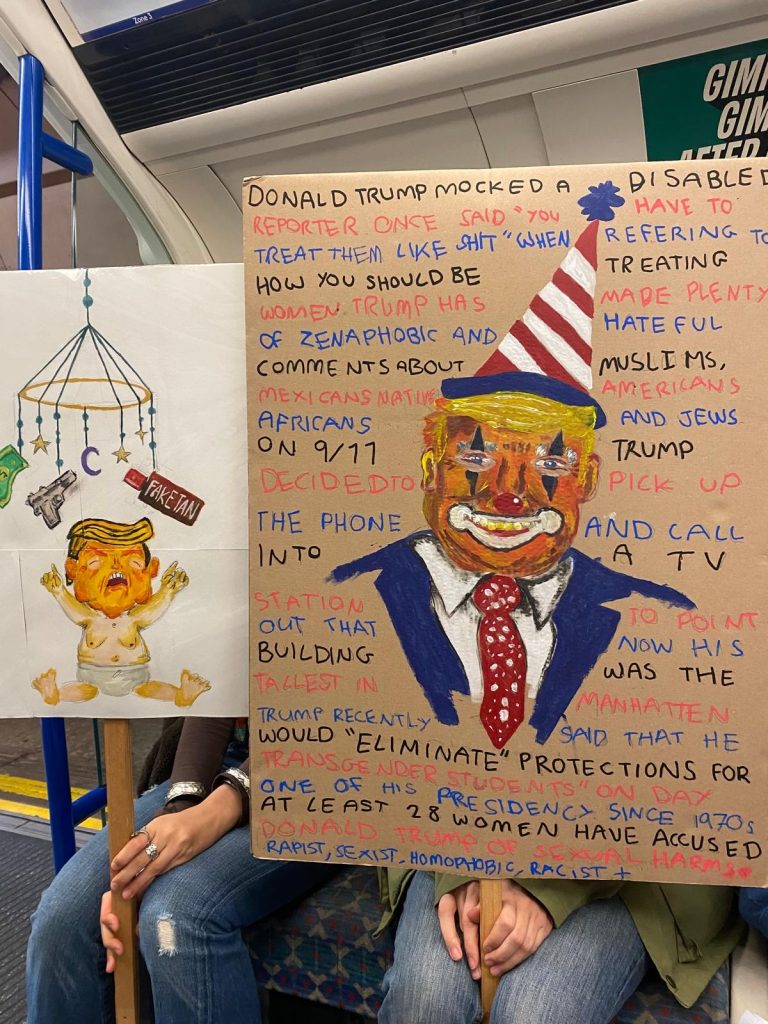 Zone 3
GIM
GIM
AFTER
FAKE TAN
DONALD TRUMP MOCKED A DISABLED
REPORTER ONCE SAID "YOU HAVE TO
TREAT THEM LIKE SHIT" WHEN REFERING TO
HOW YOU SHOULD BE TREATING
WOMEN TRUMP HAS MADE PLENTY
OF ZENAPHOBIC AND HATEFUL
COMMENTS ABOUT MUSLIMS,
MEXICANS NATIVE AMERICANS
AFRICANS AND JEWS
ON 9/11 TRUMP
DECIDED TO PICK UP
THE PHONE AND CALL
INTO A TV
STATION TO POINT
OUT THAT NOW HIS
BUILDING WAS THE
TALLEST IN MANHATTEN
TRUMP RECENTLY SAID THAT HE
WOULD "ELIMINATE" PROTECTIONS FOR
TRANSGENDER STUDENTS" ON DAY
ONE OF HIS PRESIDENCY SINCE 1970s
AT LEAST 28 WOMEN HAVE ACCUSED
DONALD TRUMP OF SEXUAL HARMS
RAPIST, SEXIST, HOMOPHOBIC, RACIST +